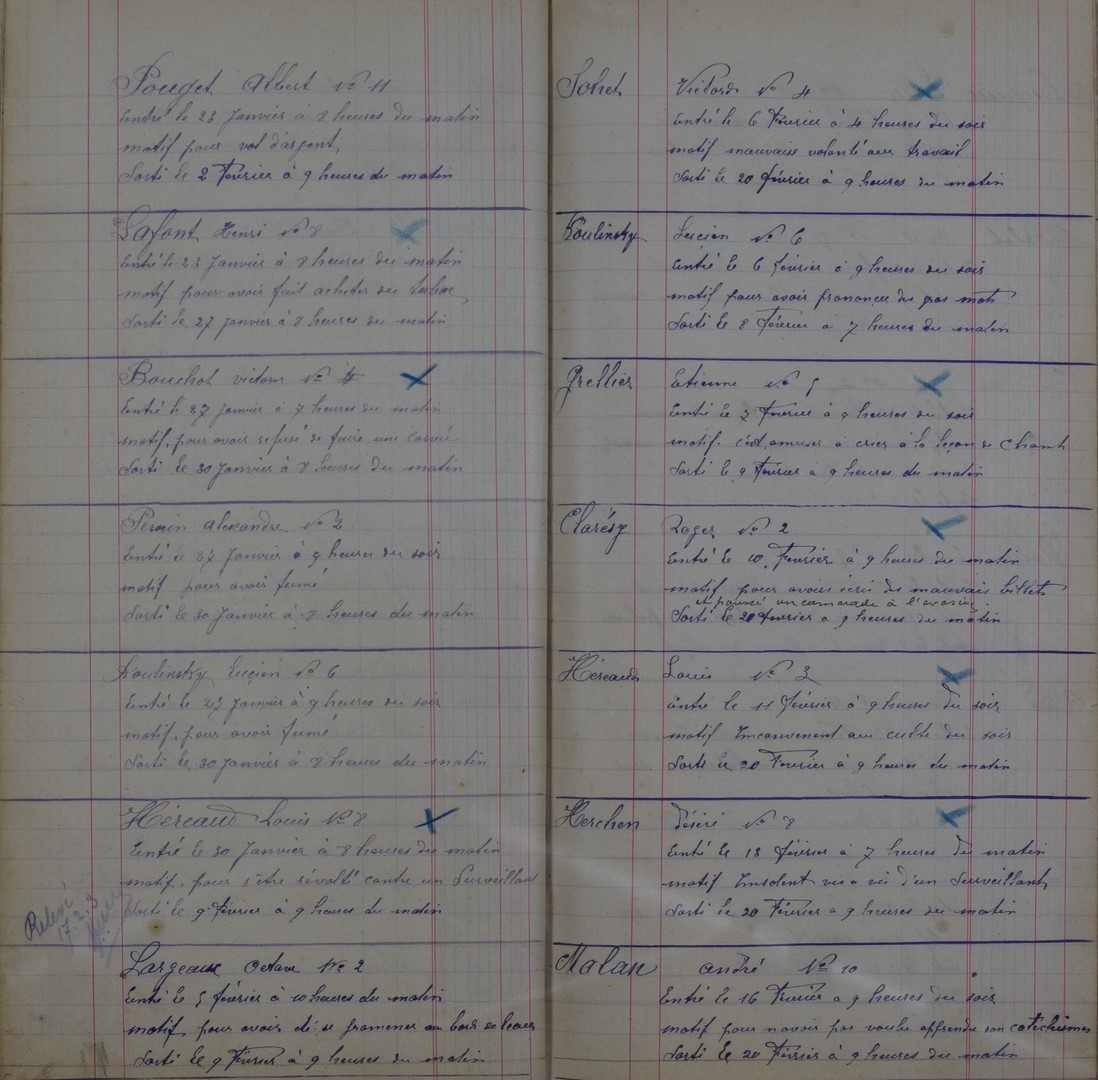 Pouget Albert No 11
Entré le 23 Janvier à 8 heures du matin
motif pour vol d'argent
Sorti le 2 Février à 9 heures du matin
Lafont Henri No 8
Entré le 23 Janvier à 8 heures du matin
motif pour avoir fait acheter du tabac
Sorti le 27 Janvier à 8 heures du matin
Bouchot victor No 4
Entré le 27 Janvier à 7 heures du matin
motif. pour avoir refusé de faire une corvée
Sorti le 30 Janvier à 8 heures du matin
alexandre No 2
Entré le 27 Janvier à 9 heures du soir
motif pour avoir fumé
Sorti le 30 Janvier à 8 heures du matin
Koulinsky Lucien No 6
Entré le 27 Janvier à 9 heures du soir
motif. pour avoir fumé
Sorti le 30 Janvier à 8 heures du matin
Héreaud Louis No 8
Entré le 30 Janvier à 8 heures du matin
motif. pour s'être révolté contre un Surveillant
Sorti le 9 Février à 9 heures du matin
Relevé
17.2.3
Largeaux Octave No 2
Entré le 5 février à 10 heures du matin
motif pour avoir été se promener au bord de
Sorti le 9 Février à 9 heures du matin
Victor No 4
Entré le 6 Fevrier à 4 heures du soir
motif mauvaise volonté au travail
Sorti le 20 février à 9 heures du matin
Koulinsky Lucien No 6
Entré le 6 février à 9 heures du soir
motif pour avoir prononcer des gros mots
Sorti le 8 Février a 7 heures du matin
Grellier Etienne No 5
Entré le 7 Fevrier à 9 heures du soir
motif. c'est amuser à crier à la leçon de Chant
Sorti le 9 Février à 9 heures du matin
Clarésy Roger No 2
Entré le 10 Fevrier à 9 heures du matin
motif pour avoir écris des mauvais billets
et poussé un camarade à l'evasion.
Sorti le 20 fevrier a 9 heures du matin
Héreaud Louis No 3
Entré le 11 février à 9 heures du soir
motif Inconvenent au culte du soir
Sorti le 20 Fevrier à 9 heures du matin
Herchen Désiré No 8
Entré le 13 février à 7 heures du matin
motif Insolent vis a vis d'un Surveillant
Sorti le 20 Février a 9 heures du matin
Malan andré No 10
Entré le 16 Fevrier a 9 heures du soir
motif pour n'avoir pas voulu apprendre son catéchisme
Sorti le 20 Février a 9 heures du matin